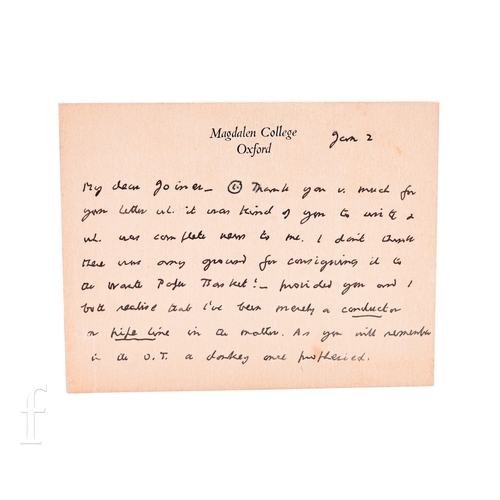 Magdalen College
Oxford
Jan 2
My dear Joiner – (1.) Thank you v. much for
your letter wh. it was kind of you to write &
wh. was complete news to me. I don't think
there was any ground for consigning it to
the Waste Paper Basket! – provided you and I
both realise that I've been merely a conductor
or pipe line in the matter. As you will remember
in the O.T. a donkey once prophesied.
f